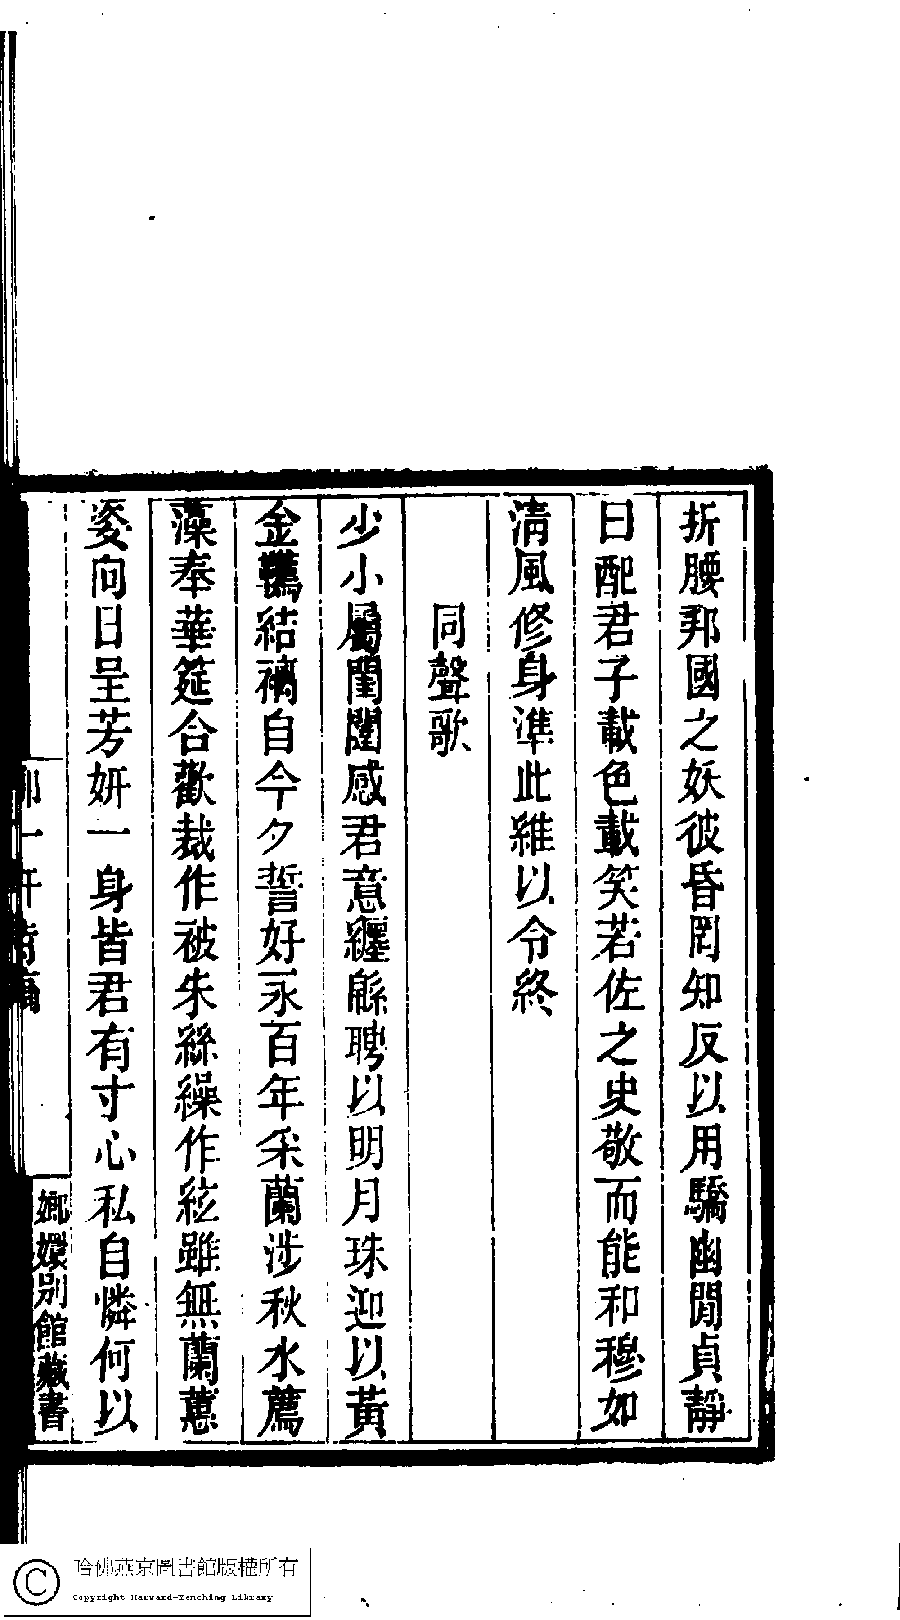 折腰邦國之妖彼昏罔知反以用驕幽閒貞靜
曰配君子載色載笑若佐之史敬而能和穆如
清風修身準此維以令終
同聲歌
少小屬閨闥感君意纏緜聘以明月珠迎以黃
金鸞結褵自今夕誓好永百年采蘭涉秋水薦
藻奉華筵合歡裁作被朱絲繰作絃雖無蘭蕙
姿向日呈芳妍一身皆君有寸心私自憐何以
嫏嬛別館藏書
哈佛燕京圖書館版權所有
Copyright Harvard-Yenching Library